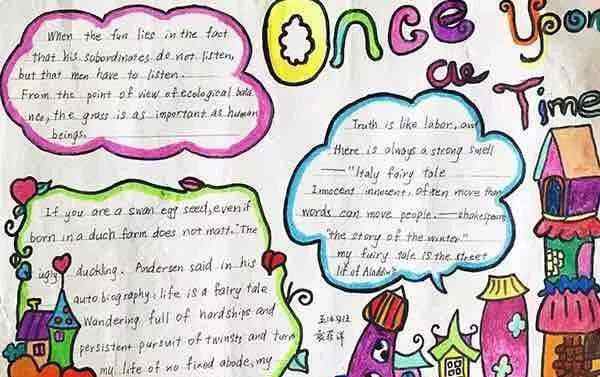 Once Upon
a Time
When the fun lies in the fact
that his subordinates do not listen,
but that men have to listen.
From the point of view of ecological bala
nce, the grass is as important as human
beings.
Truth is like labor, an
there is always a strong smell
—"Italy fairy tale
Innocent innocent, often more than
words can move people.——shakespeare
"the story of the winter"
my fairy tale is the street
lif of Aladdin"
If you are a swan egg seed, even if
born in a duch farm does not matt. "The
ugly duckling. Andersen said in his
autobiography: life is a fairy tale
Wandering full of hardships and
persistent pursuit of twinsts and turn
my life of no fixed abode, my